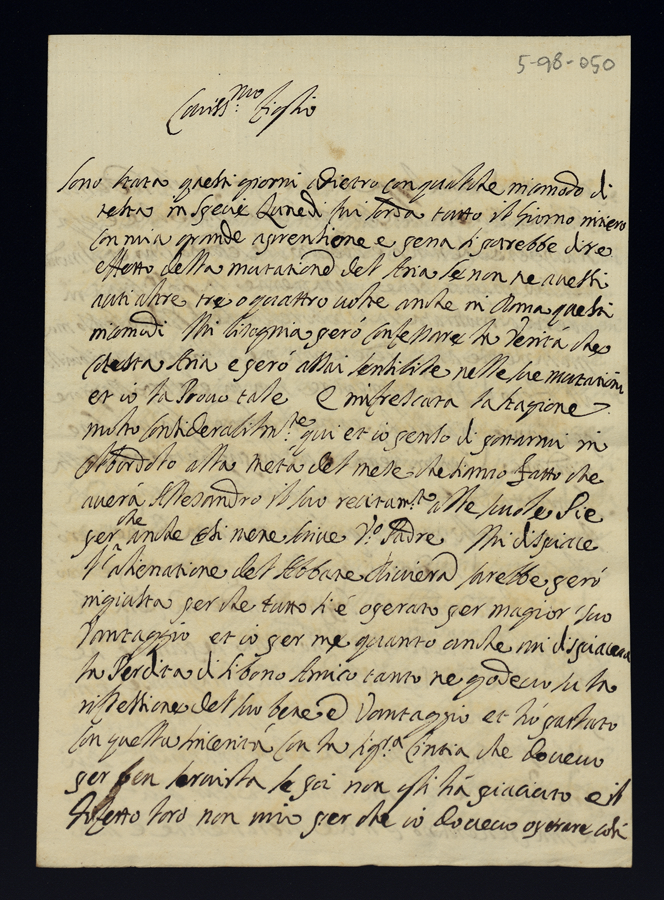 5-98-050
Cariss.mo Figlio
Sono stata questi giorni adietro con qualche incomodo di
testa in specie Lunedi fui sorda tutto il giorno intiero
con mia grande aprensione e pena si potrebbe dire
effetto della mutatione del Aria se non ne avessi
auti altre tre o quattro volte anche in Roma questi
incomodi Mi bisogna però confessare la verità che
cotesta Aria e però assai sentibile nelle sue mutationi
et io la Provo tale E rinfrescata la stagione
molto considerabilm.te qui et io penso di portarmi in
alla metà del mese che fatto che
averà Alesandro il suo recitam.to alle scuole Pie
per che anche chi ne ne scrive V.o Padre Mi dispiace
l'alienatione del Abbate Riviera sarebbe però
ingiusta perche tutto si è operato per magior suo
Vantaggio et io per me quanto anche mi dispiaceva
la Perdita di si bono Amico tanto ne godevo su la
riflessione del suo bene e Vantaggio et hò parlato
con quella sincerità con la Sig.ra Cintia che dovevo
per ben servirla se poi non gli hà piaciuto e il
difetto loro non mio per che io dovevo operare cosi